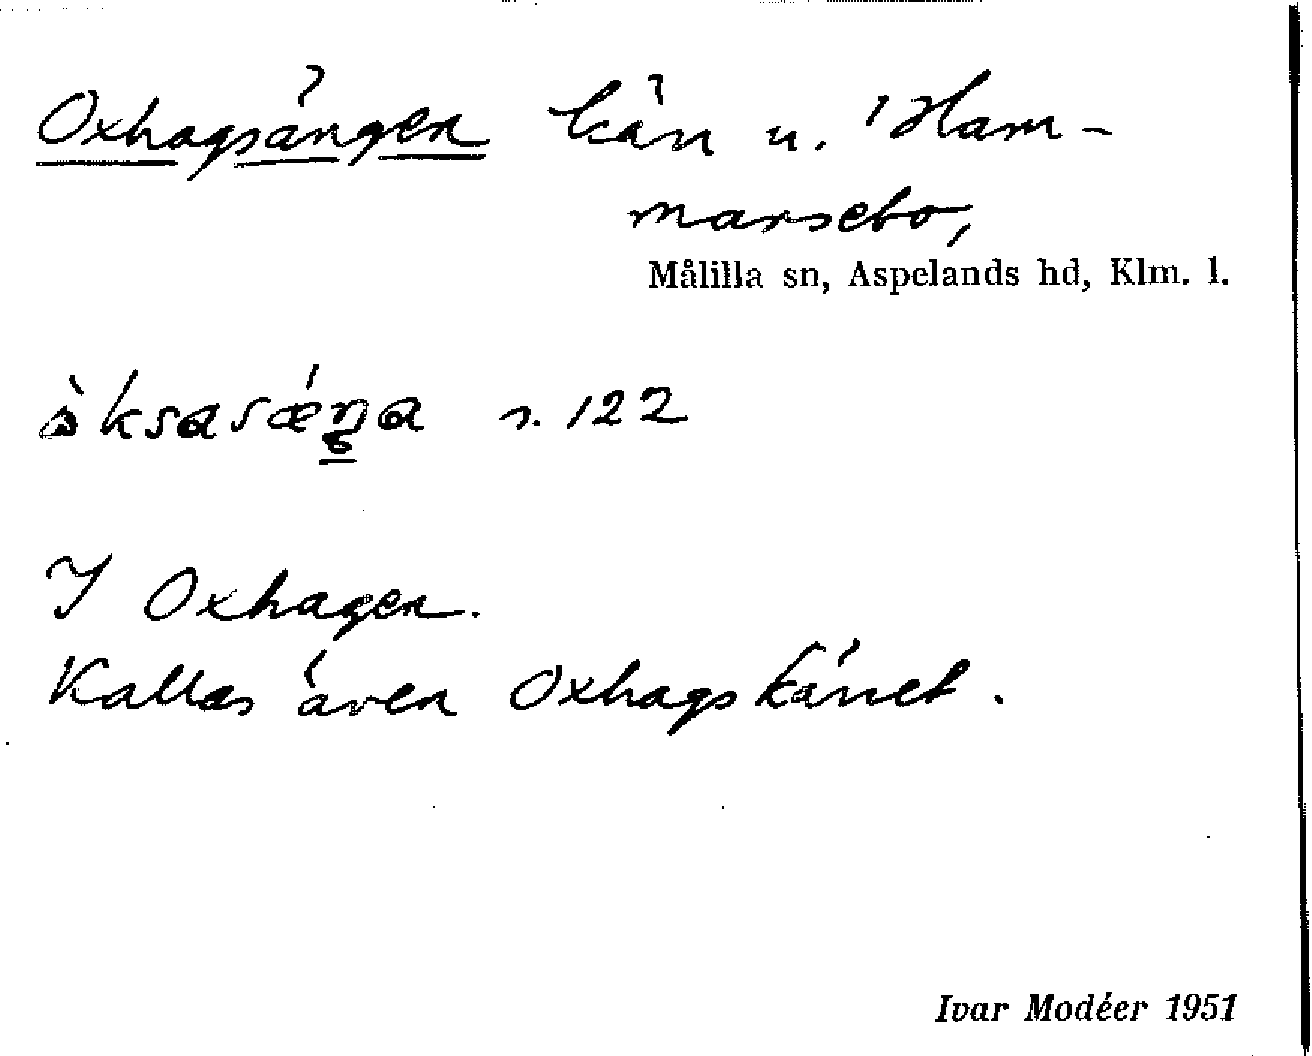 Oxhagsängen kärr u. Ham-
marsebo,
Målilla sn, Aspelands hd, Klm. l.
s. 122
I Oxhagen.
Kallas även Oxhagskärret.
Ivar Modéer 1951